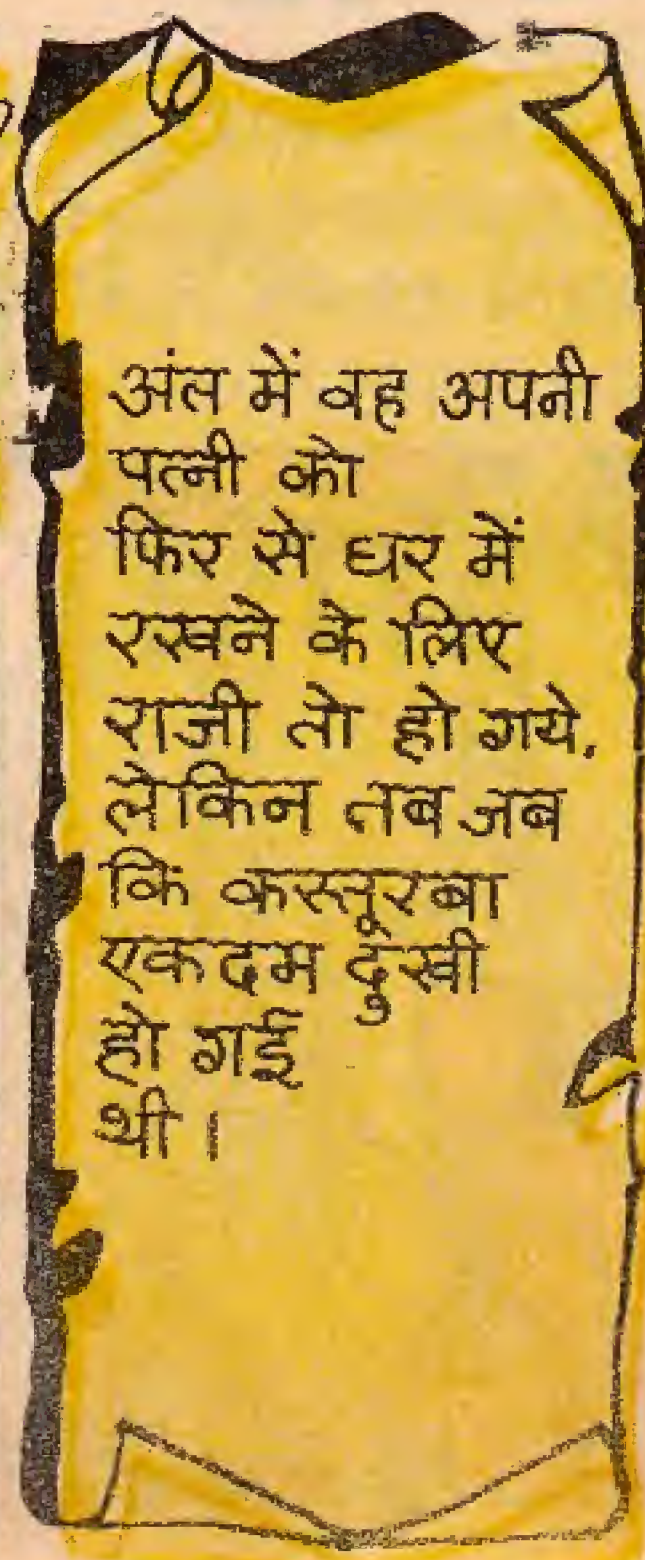 अंत में वह अपनी
पत्नी को
फिर से घर में
रखने के लिए
राजी तो हो गये.
लेकिन तब जब
कि कस्तूरबा
एकदम दुखी
हो गई
थी।